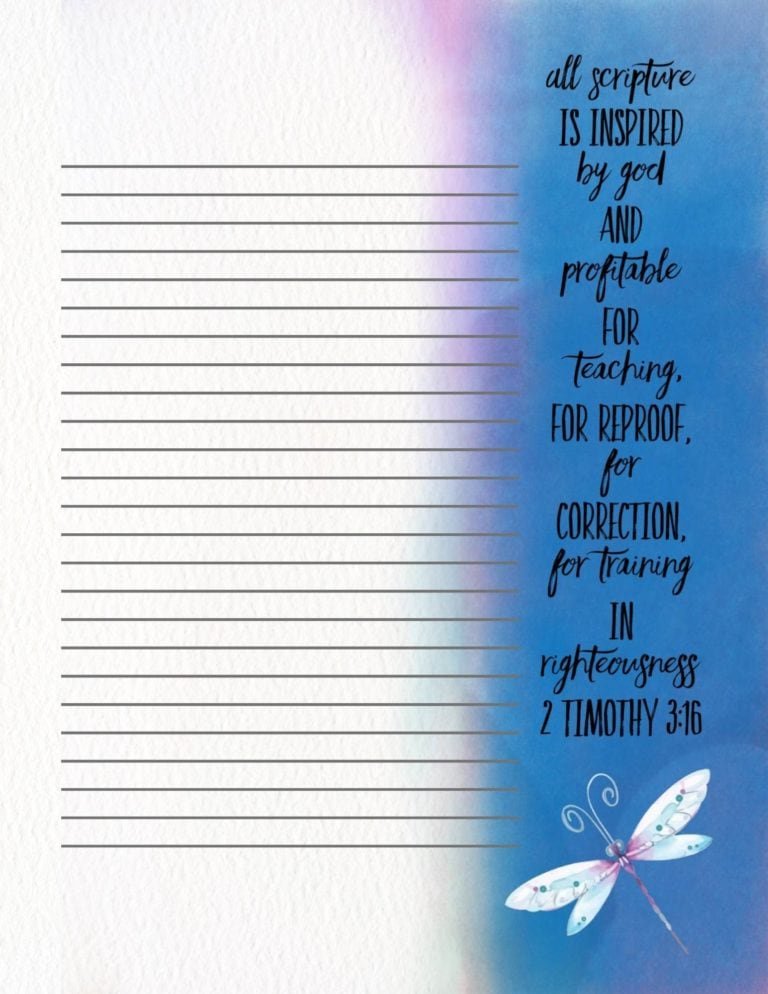 all scripture
IS INSPIRED
by god
AND
profitable
FOR
teaching,
FOR REPROOF,
for
CORRECTION,
for training
IN
righteousness
2 TIMOTHY 3:16